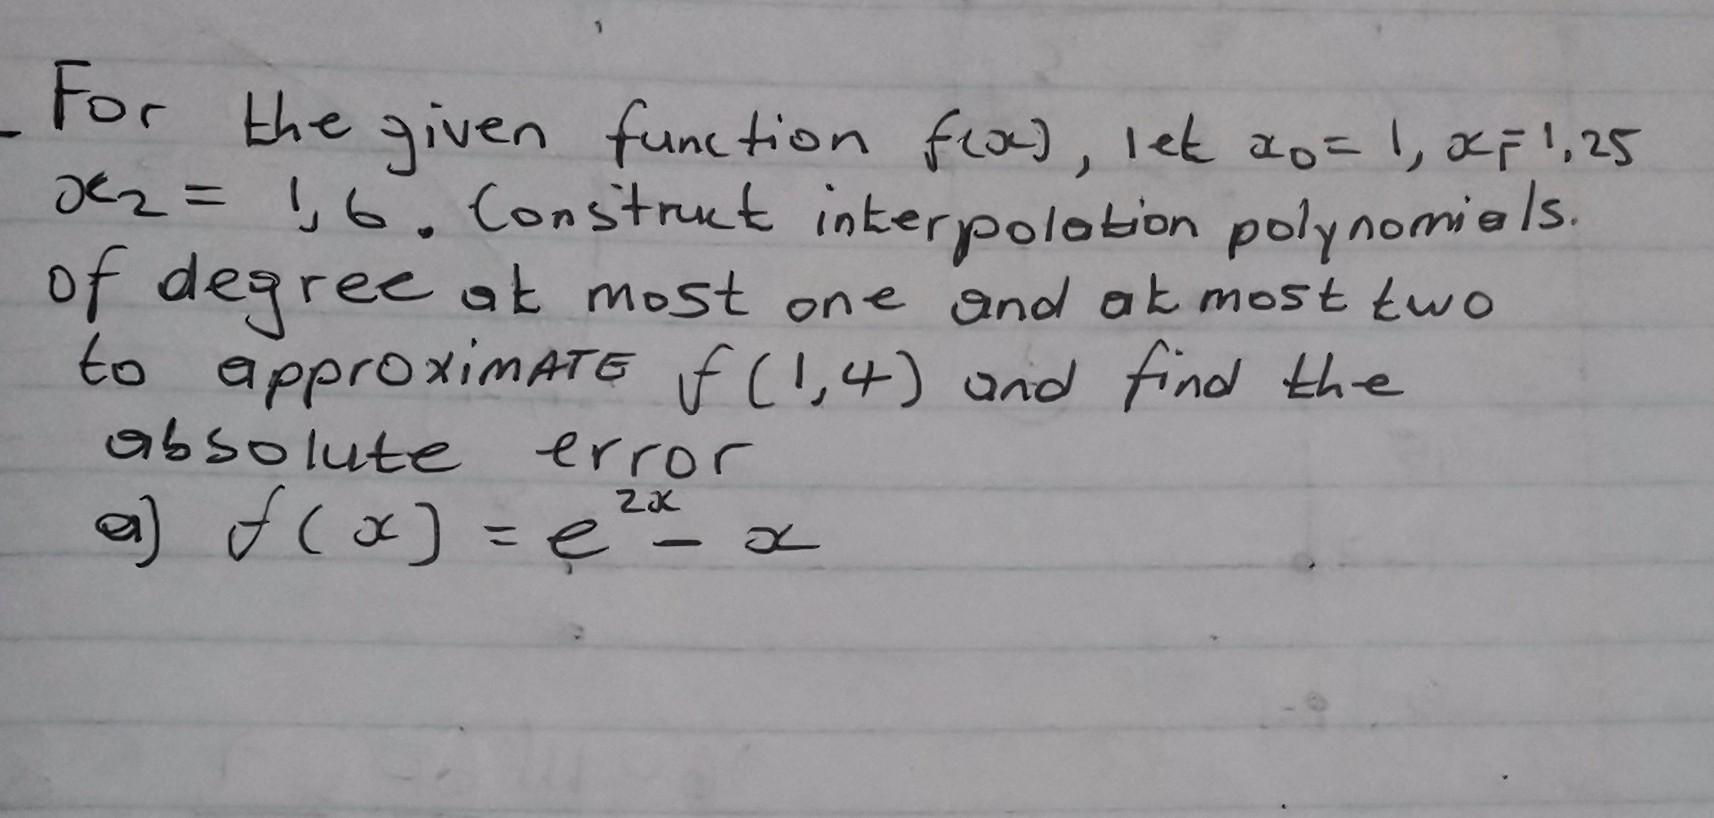 - For the given function f(x), let x₀ = 1, x₁ = 1,25
x₂ = 1,6. Construct interpolation polynomials.
of degree at most one and at most two
to approximATE f(1,4) and find the
absolute error
a) f(x) = e²ˣ - x